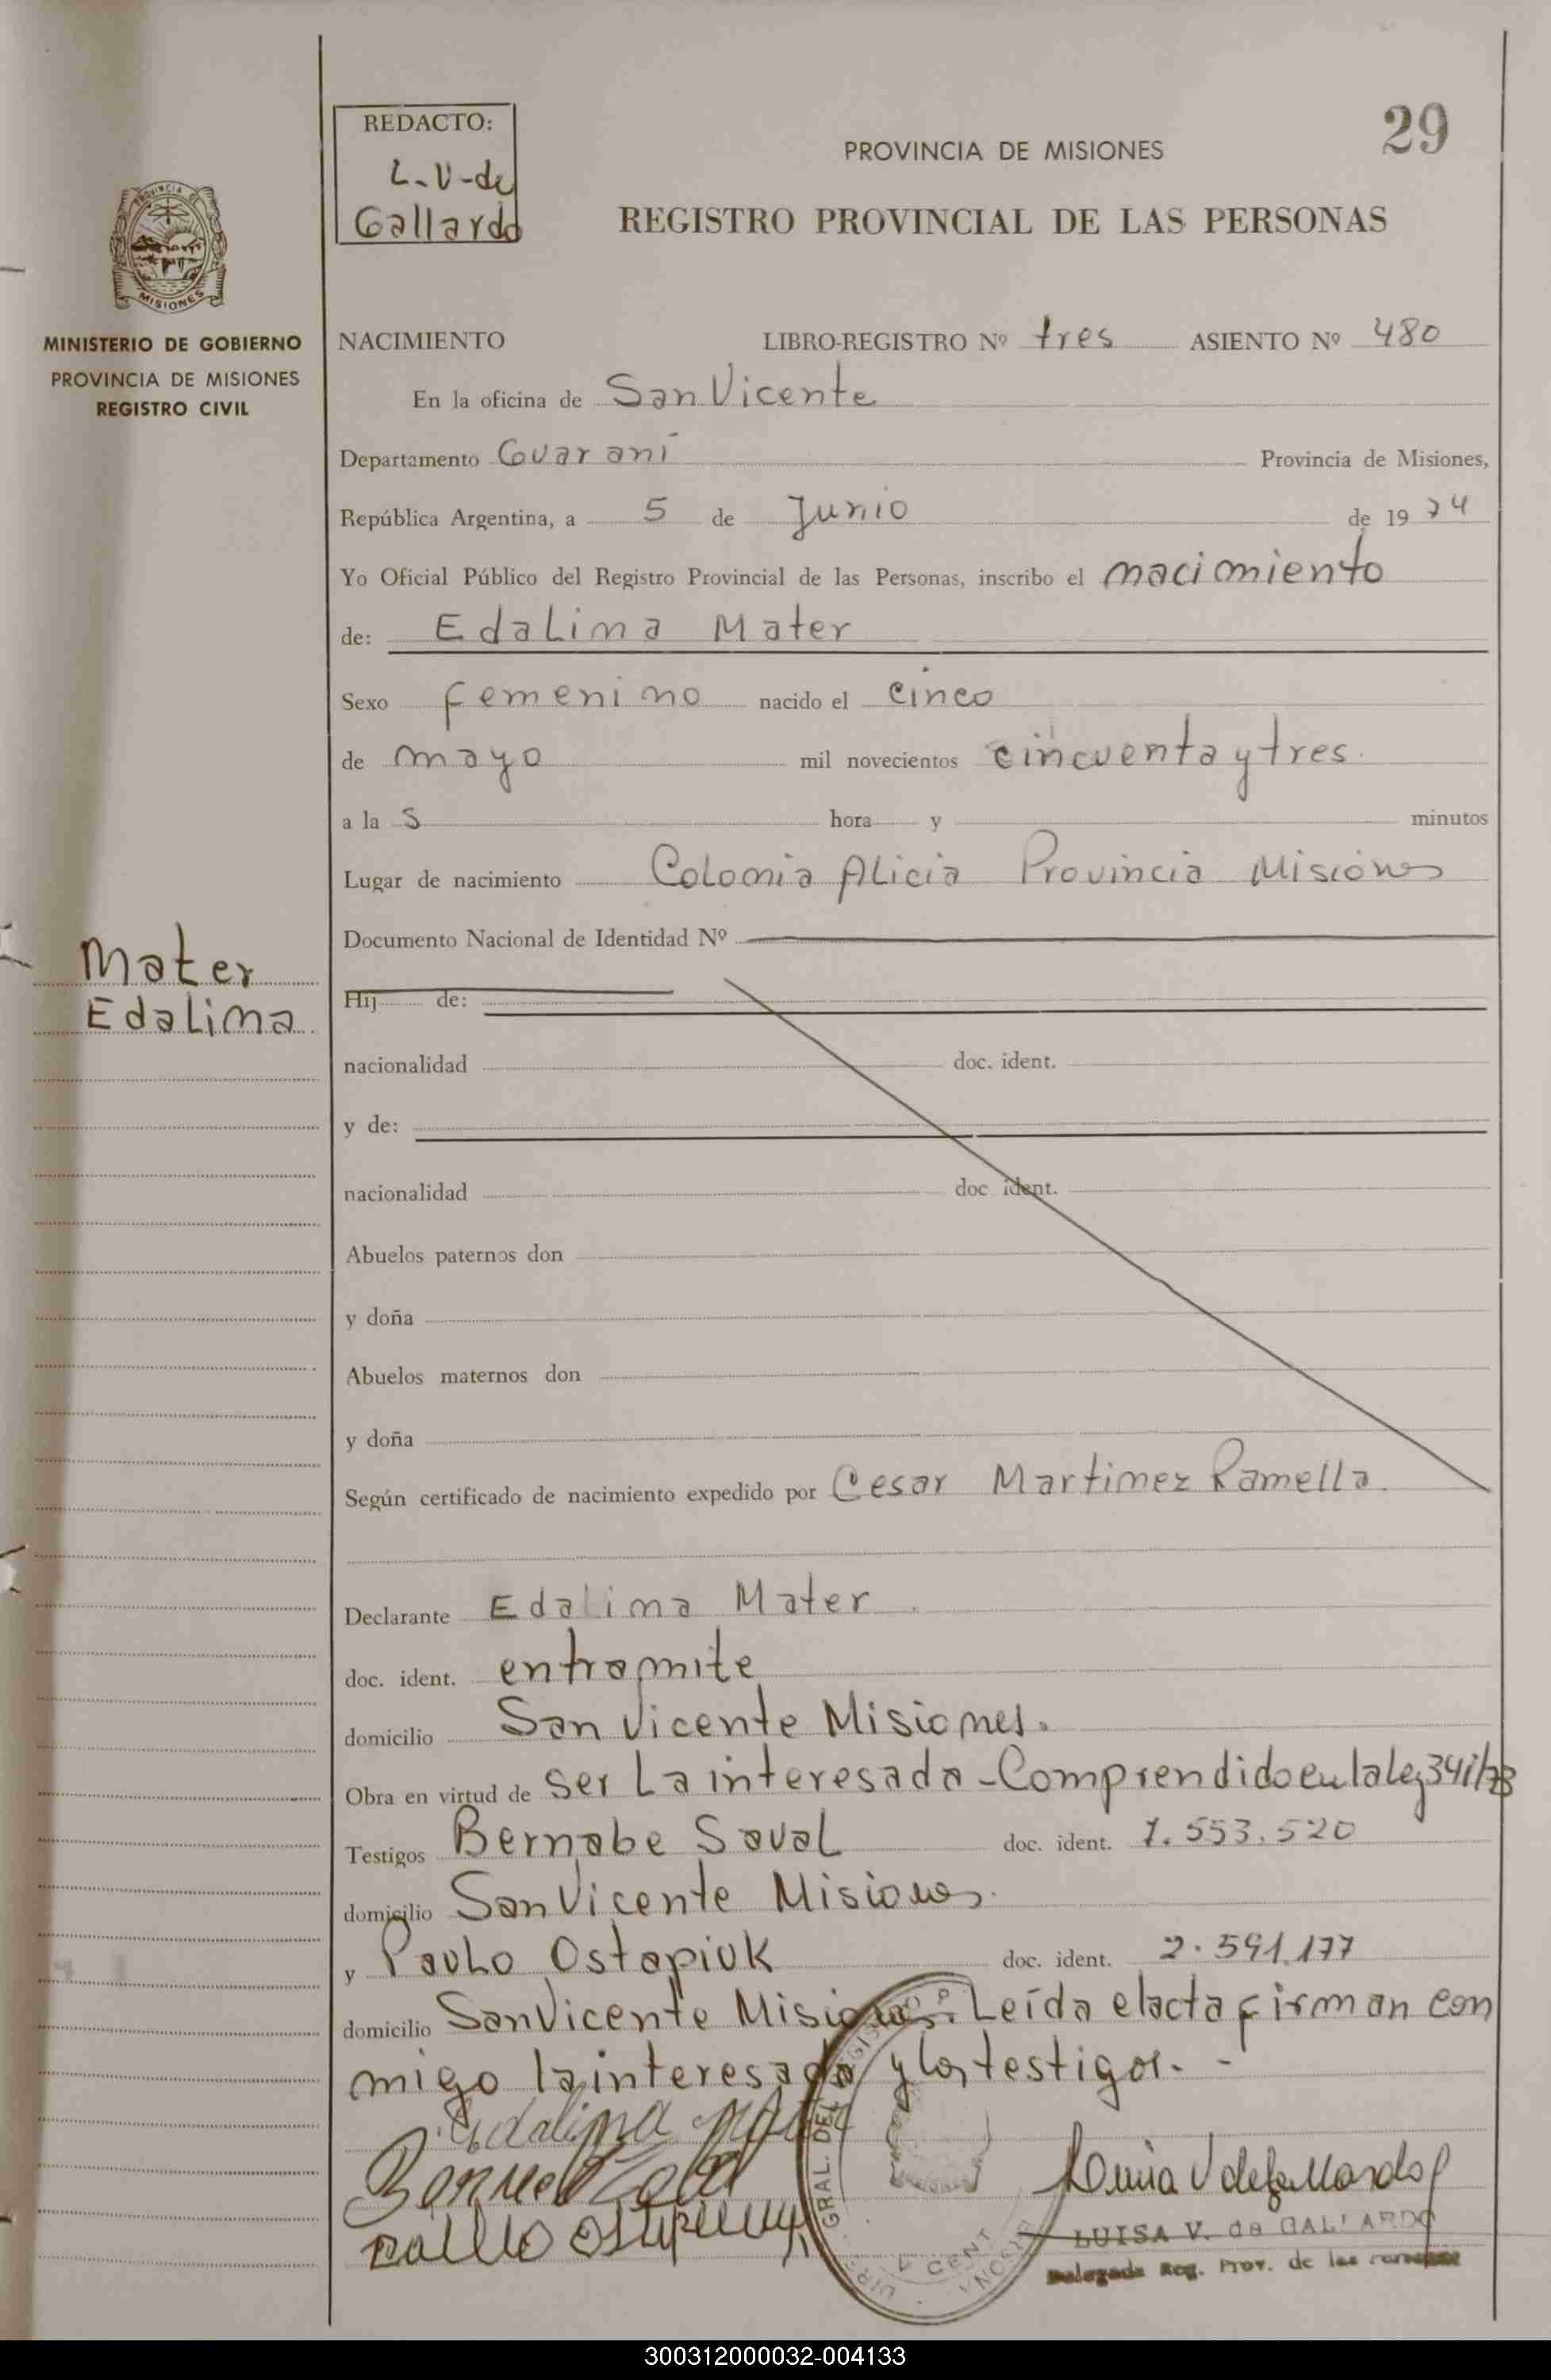 29
REDACTO:
L-V-de
Gallardo
PROVINCIA DE MISIONES
REGISTRO PROVINCIAL DE LAS PERSONAS
PROVINCIA
MISIONES
MINISTERIO DE GOBIERNO
PROVINCIA DE MISIONES
REGISTRO CIVIL
Mater
Edalima
NACIMIENTO LIBRO-REGISTRO Nº tres ASIENTO Nº 480
En la oficina de San Vicente
Departamento Guarani Provincia de Misiones,
República Argentina, a 5 de Junio de 19 74
Yo Oficial Público del Registro Provincial de las Personas, inscribo el nacimiento
de: Edalima Mater
Sexo femenino nacido el cinco
de mayo mil novecientos cincuenta y tres.
a la s hora y minutos
Lugar de nacimiento Colonia Alicia Provincia Misiones
Documento Nacional de Identidad Nº
Hij de:
nacionalidad doc. ident.
y de:
nacionalidad doc ident.
Abuelos paternos don
y doña
Abuelos maternos don
y doña
Según certificado de nacimiento expedido por Cesar Martinez Ramella.
Declarante Edalima Mater.
doc. ident. entramite
domicilio San Vicente Misiones.
Obra en virtud de ser La interesada - Comprendido en la ley 341/73
Testigos Bernabe Saval doc. ident. 7.553.520
domicilio San Vicente Misiones.
y Paulo Ostapiuk doc. ident. 2.591.177
domicilio San Vicente Misiones. Leída el acta firman con
migo la interesada y los testigos. -
Edalima
Luisa V de Gallardo
GRAL. DEL
LUISA V. de GALLARDO
Delegada Reg. Prov. de las Personas
300312000032-004133